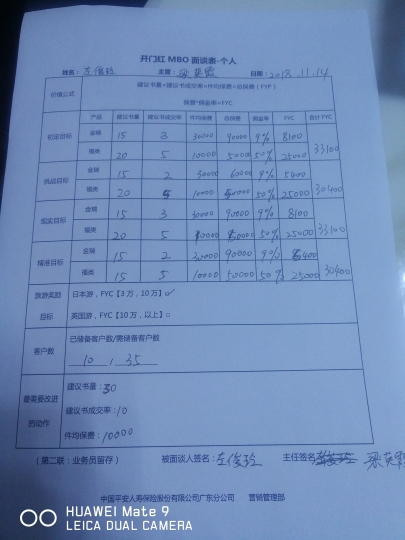 开门红 MBO 面谈表-个人
姓名：左俊玲 主管：梁英霞 日期：2018.11.14
价值公式 建议书量*建议书成交率*件均保费=总保费（FYP）
保费*佣金率=FYC
产品 建议书量 建议书成交率 件均保费 总保费 佣金率 FYC 合计 FYC
初定目标 金瑞 15 3 30000 90000 9% 8100 33100
福类 20 5 10000 50000 50% 25000
挑战目标 金瑞 15 2 30000 60000 9% 5400 30400
福类 20 5 10000 50000 50% 25000
现实目标 金瑞 15 3 30000 90000 9% 8100 33100
福类 20 5 10000 50000 50% 25000
精准目标 金瑞 15 2 90000 9% 5400 30400
福类 15 5 10000 50000 50% 25000
旅游奖励目标 日本游，FYC【3 万，10 万】☑
英国游，FYC【10 万，以上】□
客户数 已储备客户数/需储备客户数
10 / 35
最需要改进的动作 建议书量：30
建议书成交率：10
件均保费：10000
（第二联：业务员留存） 被面谈人签名：左俊玲 主任签名 梁英霞
中国平安人寿保险股份有限公司广东分公司 营销管理部
HUAWEI Mate 9
LEICA DUAL CAMERA